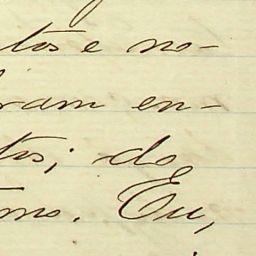 tos e no-
ram en-
tos; do
mo. Eu,